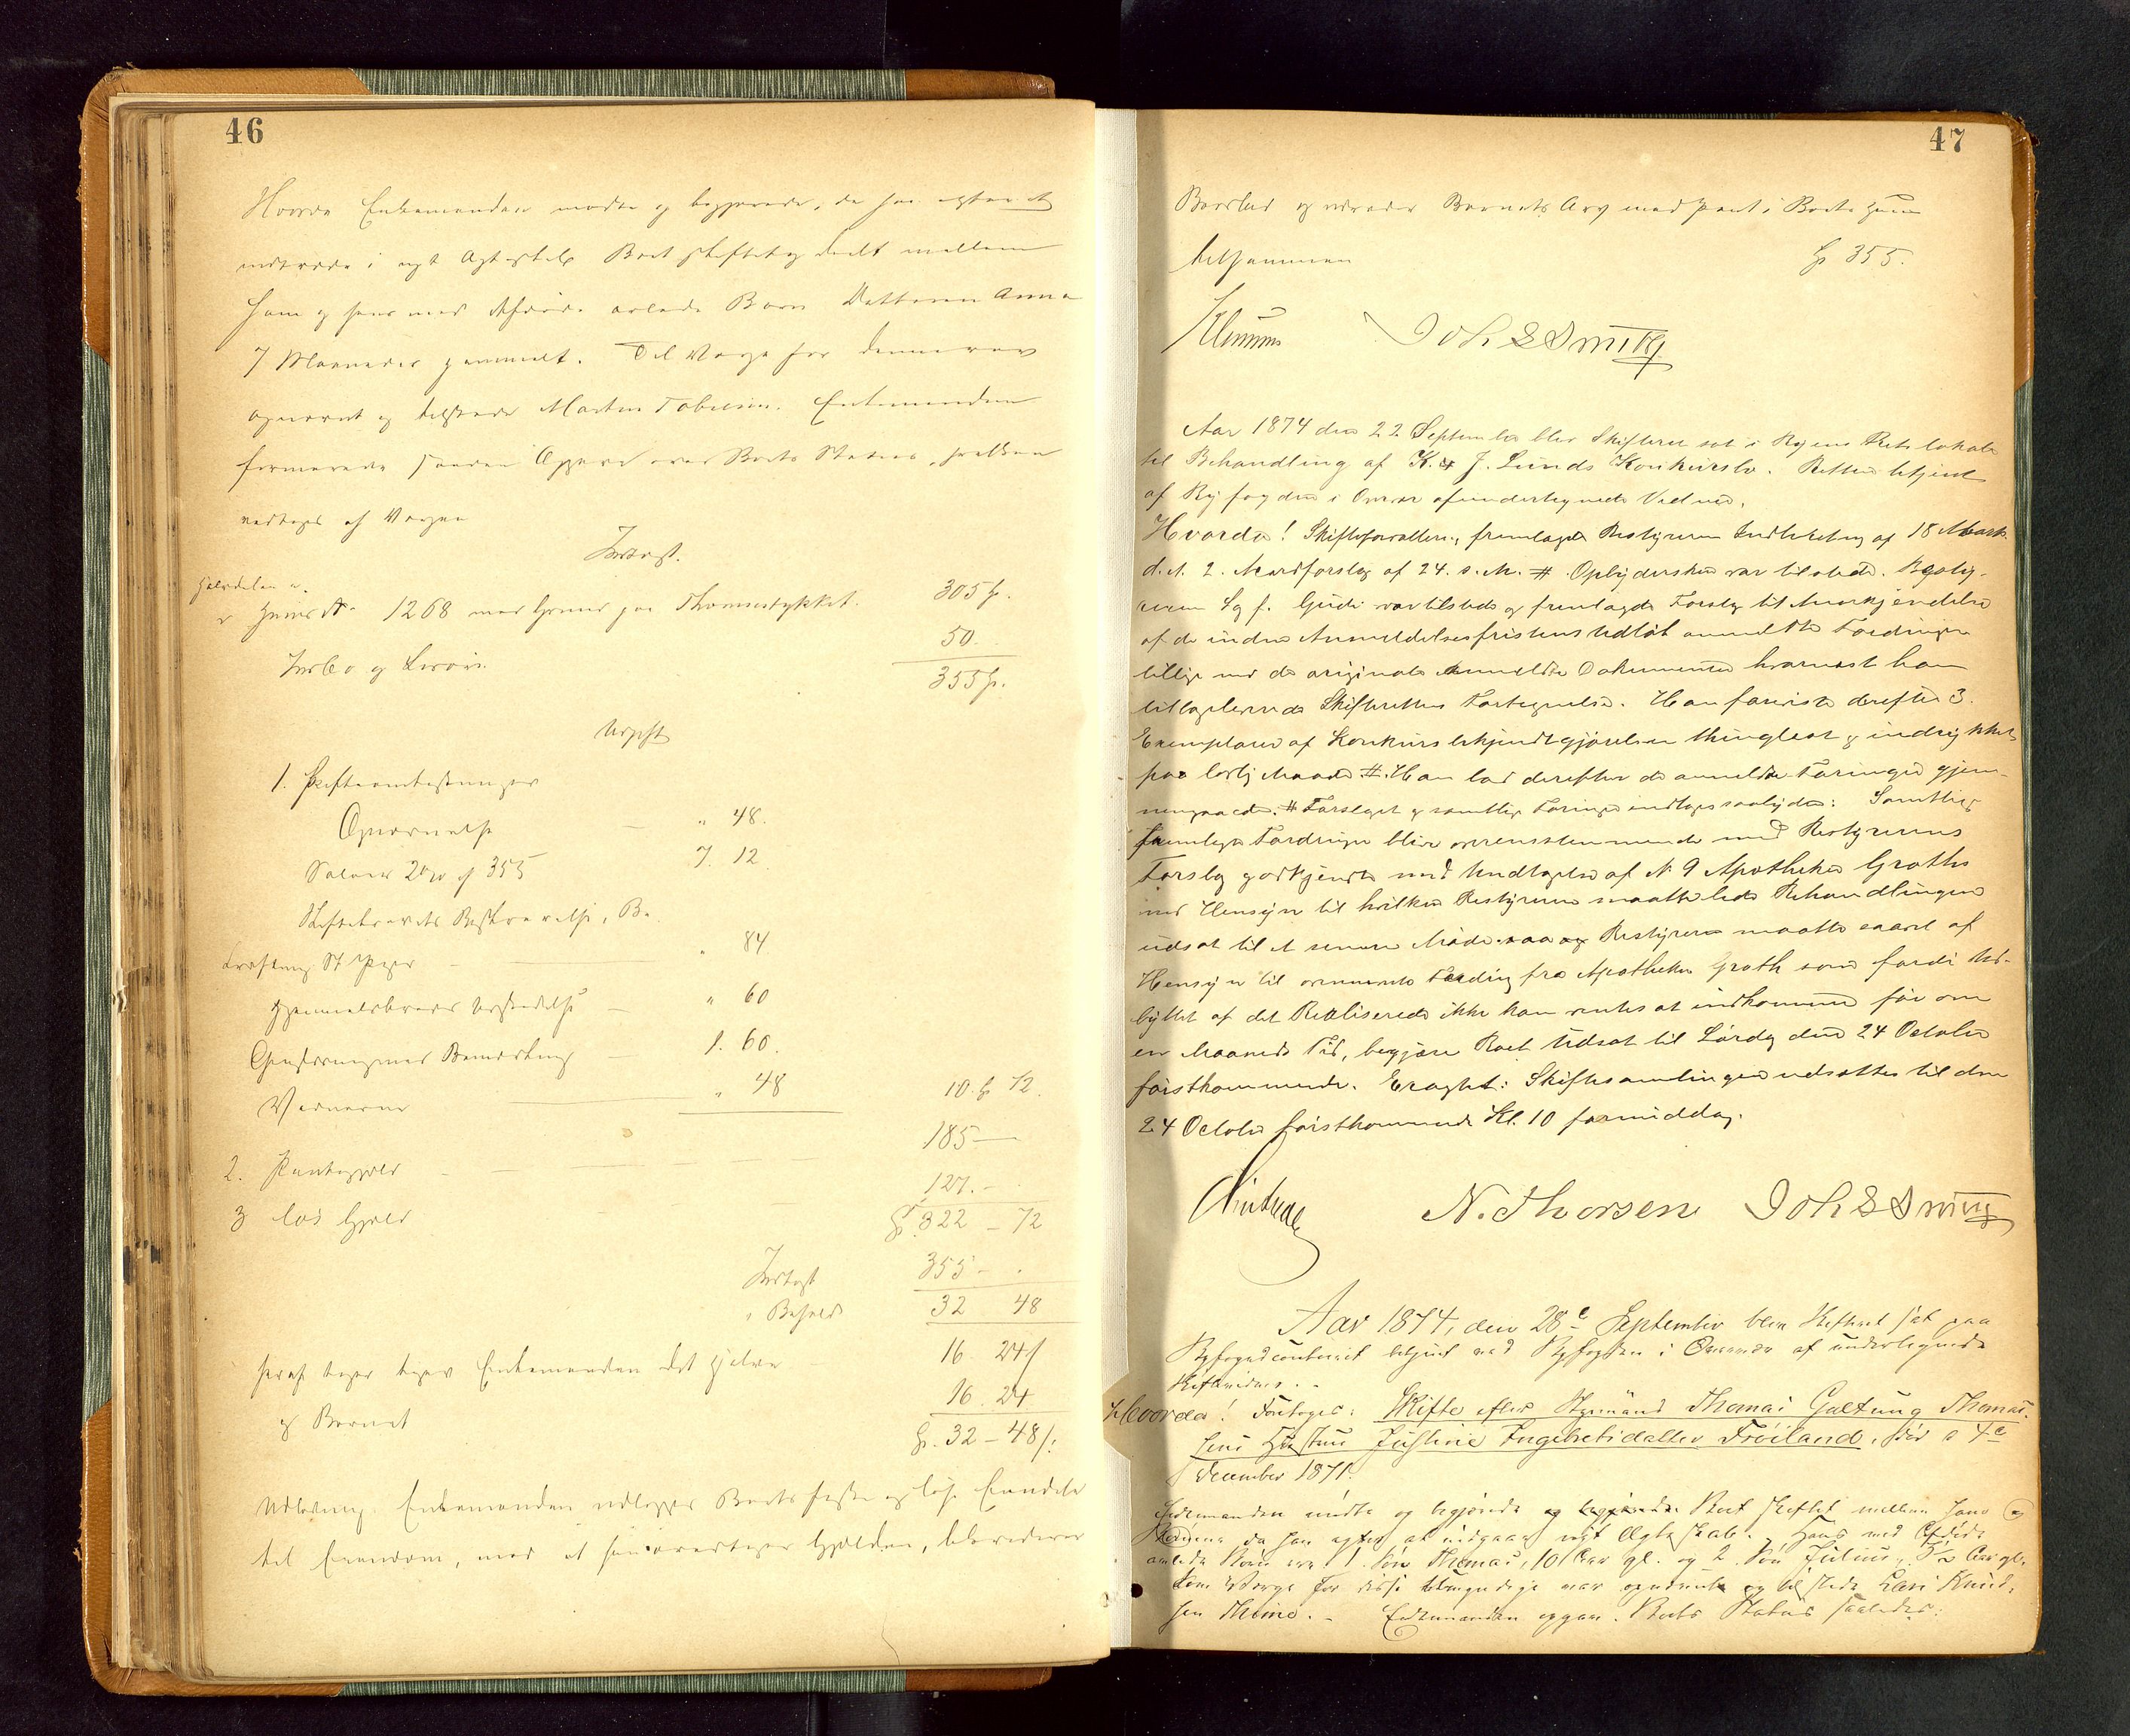 46
Hvorda Enkemanden mødte og begjærede, da han agter at
indtræde i nyt Ægteskab Boet skiftet og deelt mellem
ham og hans med Afdøde avlede Barn Datteren Anna
7 Maaneder gammelt. Til Værge for denne var
opnævnt og tilstede Morten Tobiesen. Enkemanden
formerede saadan Opgave over Boets Status, hvilken
vedtages af Værgen
Indtægt.
Halvdelen i
Huus No 1268 med Grund paa Thomsestykket. 305 Sp.
50.
Indbo og Løsøre.
355 Sp.
Udgift
1. Skifteomkostninger
Opnævnelse — " 48.
Salair 2% af 355 7. 12
Skiftebrevets Beskrivelse,
84
Hjemmelsbrevets Udstedelse — " 60
1. 60.
Vidnerne — " 48 10. Sp 72.
2. Pantegjæld — 185 —
3 løs Gjæld 127. —
Sp. 322 — 72
Indtægt 355 — .
Beholdn 32 48
heraf tager Enkemanden det halve 16. 24 s
og Barnet 16. 24
Sp. 32 — 48 s:
Udlodning. Enkemanden udlægges Boets faste og løse Eiendele
til Eiendom, mod at han overtager Gjælden, bekoster
47
Barnets Arv med Pant i Boets Huus
tilsammen Sp 355.
Joh S Smith
Aar 1874 den 22 September blev Skifteret sat i Byens Retslokale
til Behandling af K. & J. Lunds Konkursbo. Retten betjent
af Byfogden i Overvær af undertegnede Vidner.
Hvorda! Skifteforvalteren fremlagde Bestyreren Indberetning af 18 Marts
d. A. 2. Arvedforslag af 24. s. M. # Opbydersken var tilstede. Bestyreren
Sgf. Gude var tilstede og fremlagde Forslag til Anerkjendelse
af de inden Anmeldelsesfristens Udløb anmeldte Fordringer
tillige med de originale anmeldte Dokumenter hvornæst han
tilbageleverede Skifterettens Fortegnelse. Han foreviste derefter 3.
Exemplarer af Konkursbekjendtgjørelsen thinglæst og indrykket
paa lovlig Maade #. Han lod derefter de anmeldte Fordringer gjen-
nemgaaede. # Forslaget og samtlige Fordringer indtages saalydende: Samtlige
fremlagte Fordringer bliver overensstemmende med Bestyrerens
Forslag godkjendte med Undtagelse af N. 9 Apotheker Groths
med Hensyn til hvilken Bestyreren maatte bede Behandlingen
udsat til et senere Møde. saa og Bestyreren maatte saavel af
Hensyn til ommeldte Fordring fra Apotheker Groth som fordi Ud-
byttet af det Realiserede ikke kan ventes at indkomme før om
en Maaneds Tid, begjære Boet Udsat til Lørdag den 24 October
førstkommende. Eragtet: Skiftesamlingen udsættes til den
24 October førstkommende Kl. 10 formiddag.
N. Thorsen Joh S Smith
Aar 1874, den 28e September blev Skifteret sat paa
Byfogedcontoiret betjent ved Byfogden i Overvær af undertegnede
Skiftevidner. -
Hvorda! Foretoges: Skifte efter Styrmand Thomas Galtung Thomas-
sens Hustru Justine Ingebretsdatter Frøiland, død d 4e
December 1871.
Enkemanden mødte og begjærede og begjærede Boet skiftet mellem ham og
Børnene da han agter at indgaae nyt Ægteskab. Hans med Afdøde
avlede Børn ere 1. Søn Thomas, 10 Aar gl. og 2. Søn Julius, Aar gl.
Som Værge for disse umyndige var opnævnt og tilstede Lars Knud-
sen Thime. - Enkemanden opgav Boets Status saaledes: